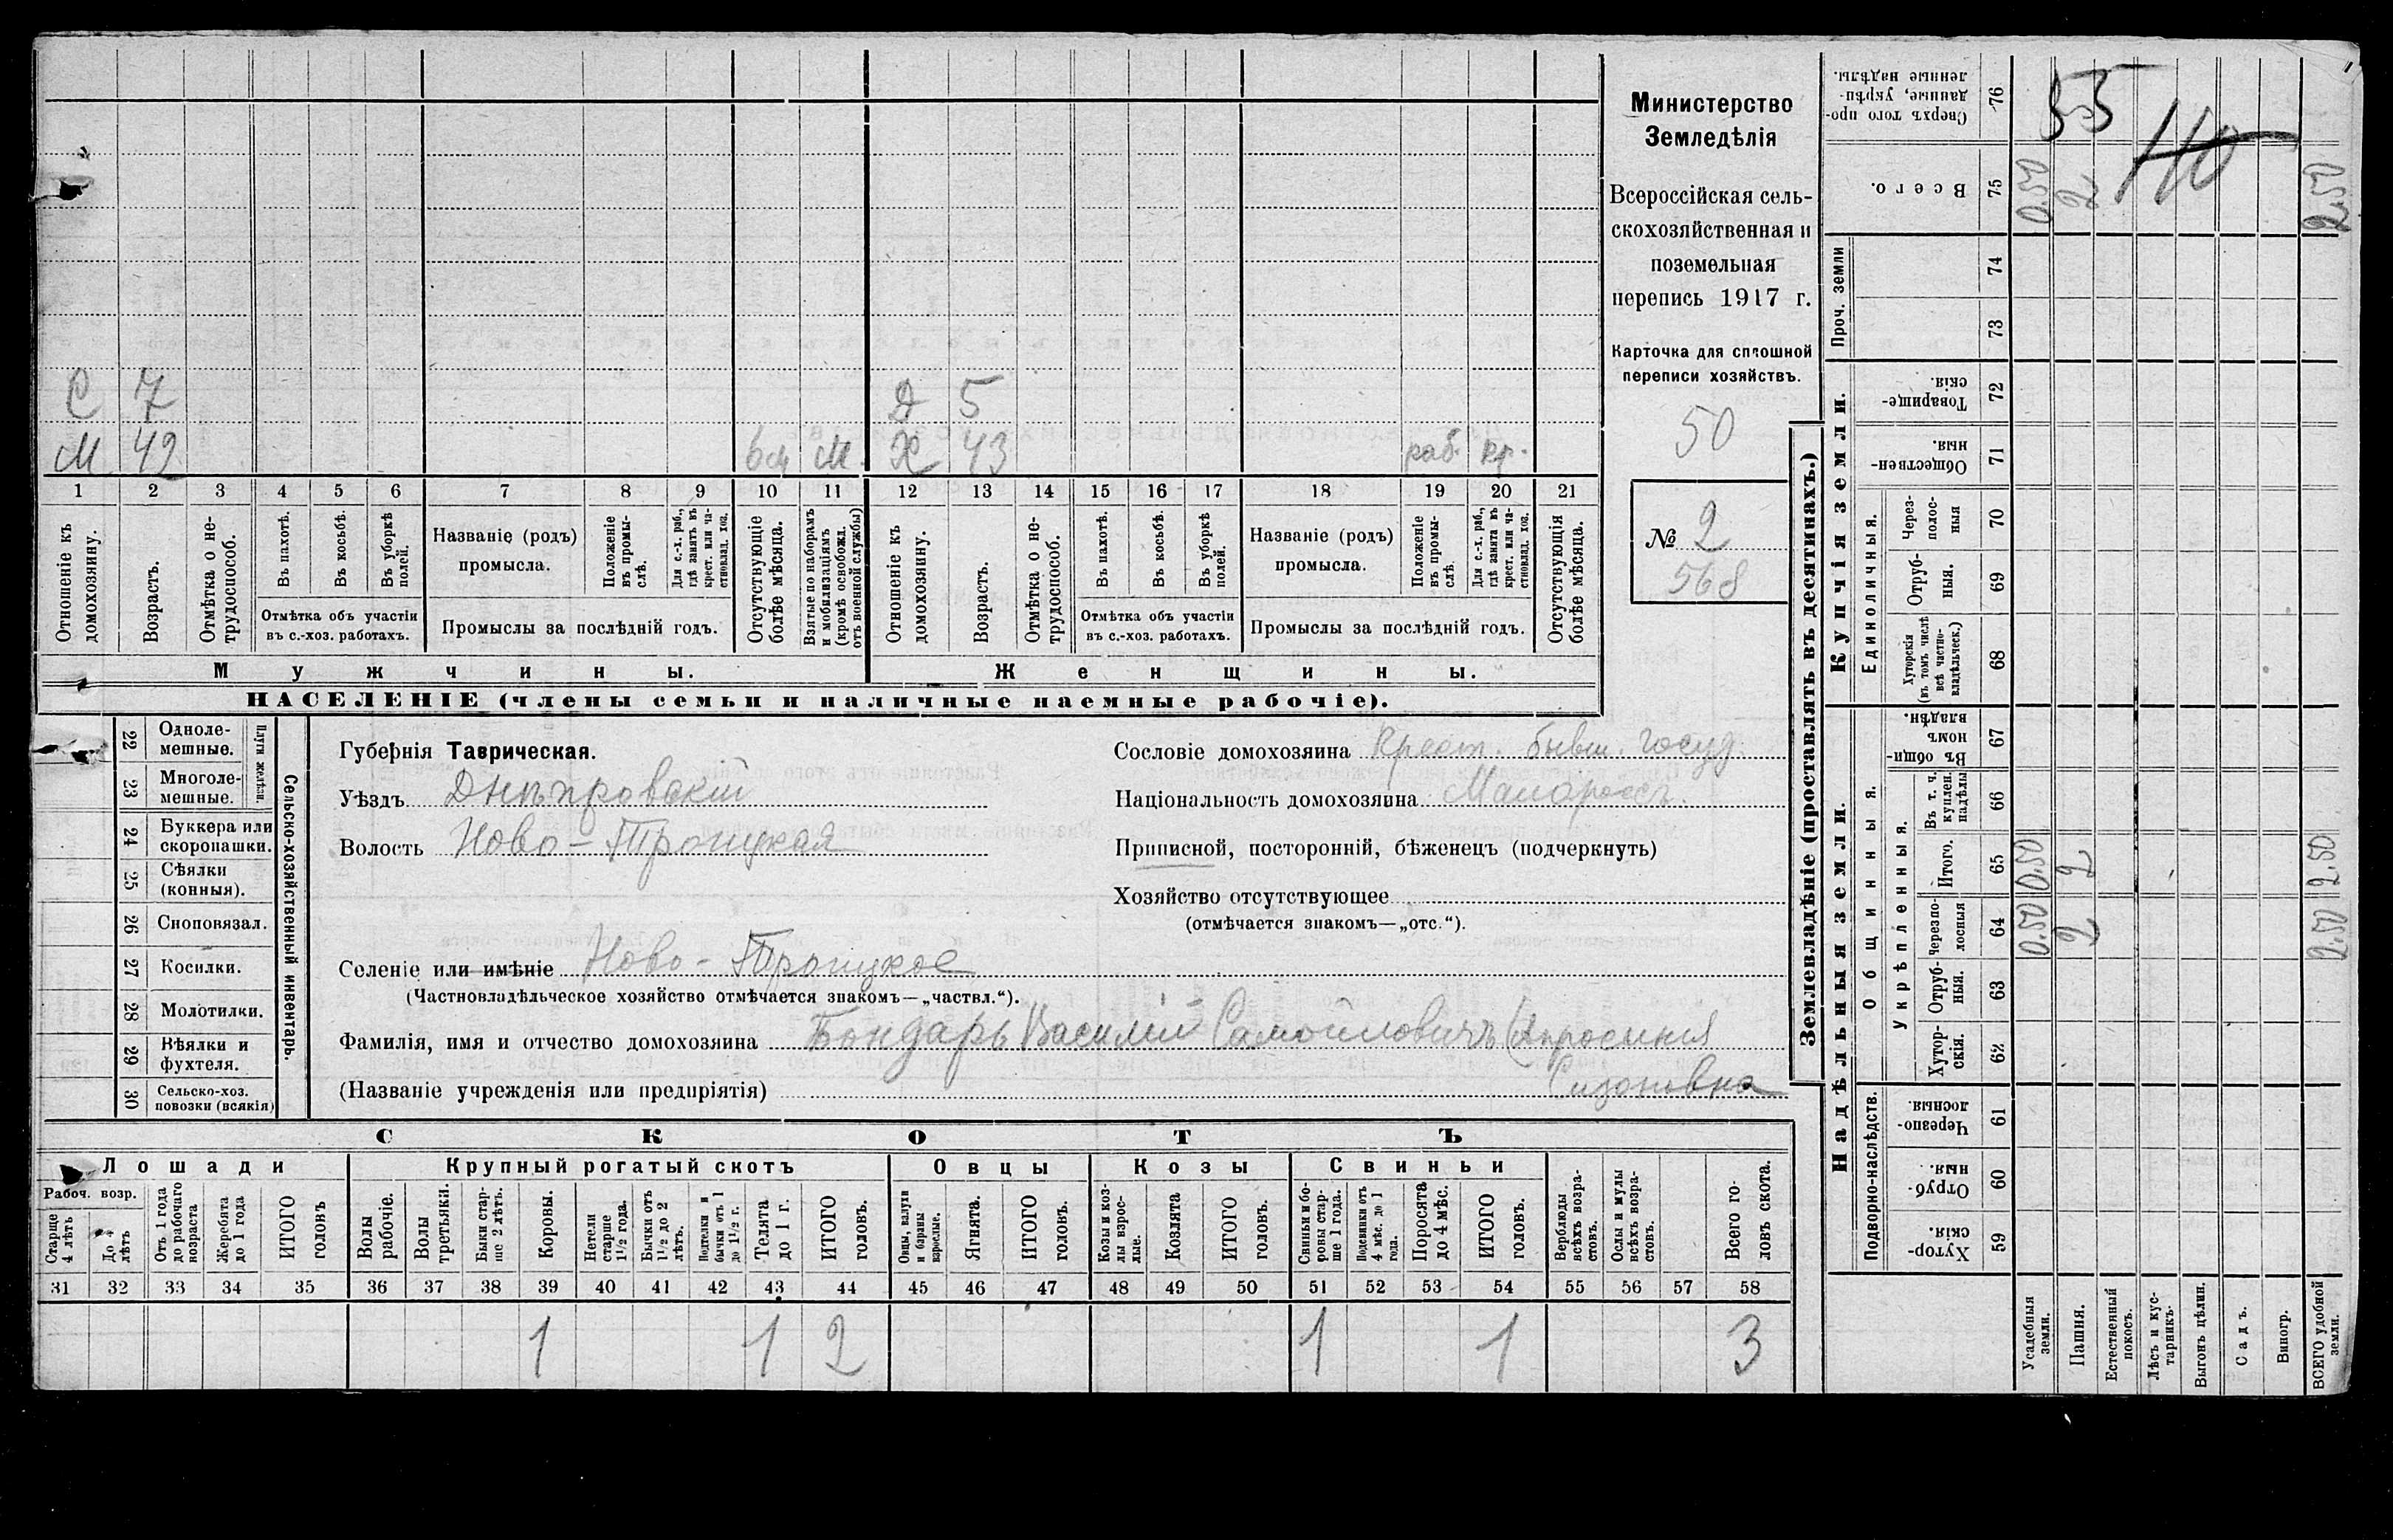 Министерство
Земледѣлія
Всероссійская сель-
скохозяйственная и
поземельная
перепись 1917 г.
Карточка для сплошной
переписи хозяйствъ.
50
№ 2
568
С 7 Д 5
М 42 М. Х 43 раб. кр.
1 2 3 4 5 6 7 8 9 10 11 12 13 14 15 16 17 18 19 20 21
Отношеніе къ домохозяину.
Возрастъ.
Отмѣтка о не-
трудоспособ.
Въ пахотѣ.
Въ косьбѣ.
Въ уборкѣ полей.
Отмѣтка объ участіи
въ с.-хоз. работахъ.
Названіе (родъ)
промысла.
Положеніе
въ промы-
слѣ.
Для с.-х. раб.,
гдѣ занятъ въ
крест. или ча-
стновлад. хоз.
Промыслы за послѣдній годъ.
Отсутствующіе
болѣе мѣсяца.
Взятые по наборамъ
и мобилизаціямъ
(кромѣ освобожд.
отъ военной службы)
Отношеніе къ
домохозяину.
Возрастъ.
Отмѣтка о не-
трудоспособ.
Въ пахотѣ.
Въ косьбѣ.
Въ уборкѣ
полей.
Отмѣтка объ участіи
въ с.-хоз. работахъ.
Названіе (родъ)
промысла.
Положеніе
въ промы-
слѣ.
Для с.-х. раб.,
гдѣ занята въ
крест. или ча-
стновлад. хоз.
Промыслы за послѣдній годъ.
Отсутствующія
болѣе мѣсяца.
Мужчины.
Женщины.
НАСЕЛЕНІЕ (члены семьи и наличные наемные рабочіе).
Сельско-хозяйственный инвентарь.
Плуги желѣзн.
22 Одноле-
мешные.
23 Многоле-
мешные.
24 Буккера или
скоропашки.
25 Сѣялки
(конныя).
26 Сноповязал.
27 Косилки.
28 Молотилки.
29 Вѣялки и
фухтеля.
30 Сельско-хоз.
повозки (всякія)
Губернія Таврическая.
Уѣздъ Днѣпровскій
Волость Ново-Троицкая
Селеніе или имѣніе Ново-Троицкое
(Частновладѣльческое хозяйство отмѣчается знакомъ—„частвл.“).
Сословіе домохозяина Крест. бывш. госуд.
Національность домохозяина Малороссъ.
Приписной, посторонній, бѣженецъ (подчеркнуть)
Хозяйство отсутствующее
(отмѣчается знакомъ—„отс.“).
Фамилія, имя и отчество домохозяина Бондарь Василій Самойловичъ (Апросинія
(Названіе учрежденія или предпріятія) Сизоновна
СКОТЪ
Лошади
Крупный рогатый скотъ
Овцы
Козы
Свиньи
Рабоч. возр.
Старше
4 лѣтъ
До 4
лѣтъ
Отъ 1 года
до рабочаго
возраста
Жеребята
до 1 года
ИТОГО
головъ
Волы
рабочіе.
Волы
третьяки.
Быки стар-
ше 2 лѣтъ.
Коровы.
Нетели
старше
1½ года.
Бычки отъ
1½ до 2
лѣтъ.
Подтелки и
бычки отъ 1
до 1½ г.
Телята
до 1 г.
ИТОГО
головъ.
Овцы, валухи
и бараны
взрослые.
Ягнята.
ИТОГО
головъ.
Козы и коз-
лы взрос-
лые.
Козлята
ИТОГО
головъ.
Свиньи и бо-
ровы стар-
ше 1 года.
Подсвинки отъ
4 мѣс. до 1
года.
Поросята
до 4 мѣс.
ИТОГО
головъ.
Верблюды
всѣхъ возра-
стовъ.
Ослы и мулы
всѣхъ возра-
стовъ.
Всего го-
ловъ скота.
31 32 33 34 35 36 37 38 39 40 41 42 43 44 45 46 47 48 49 50 51 52 53 54 55 56 57 58
1 1 2 1 1 3
Землевладѣніе (проставлять въ десятинахъ.)
Купчія земли.
Надѣльныя земли.
Сверхъ того про-
данные, укрѣп-
ленные надѣлы. 76
Всего. 75
Проч. земли
74
73
Товарище-
скія. 72
Обществен-
ныя. 71
Единоличныя.
Через-
полос-
ныя 70
Отруб-
ныя. 69
Хуторскія
(въ томъ числѣ
всѣ частно-
владѣльческ.) 68
Общинныя.
Въ общи-
номъ
владѣн. 67
Укрѣпленныя.
Въ т. ч.
куплен.
надѣлы 66
Итого. 65
Черезпо-
лосныя 64
Отруб-
ныя. 63
Хутор-
скія. 62
Подворно-наслѣдств.
Черезпо-
лосныя. 61
Отруб-
ныя. 60
Хутор-
скія. 59
Усадебныя
земли.
Пашня.
Естественный
покосъ.
Лѣсъ и кус-
тарникъ.
Выгонъ цѣлин.
Садъ.
Виногр.
ВСЕГО удобной
земли.
55
0.50 2 2.50
0.50 2 2.50
0.50 2 2.50